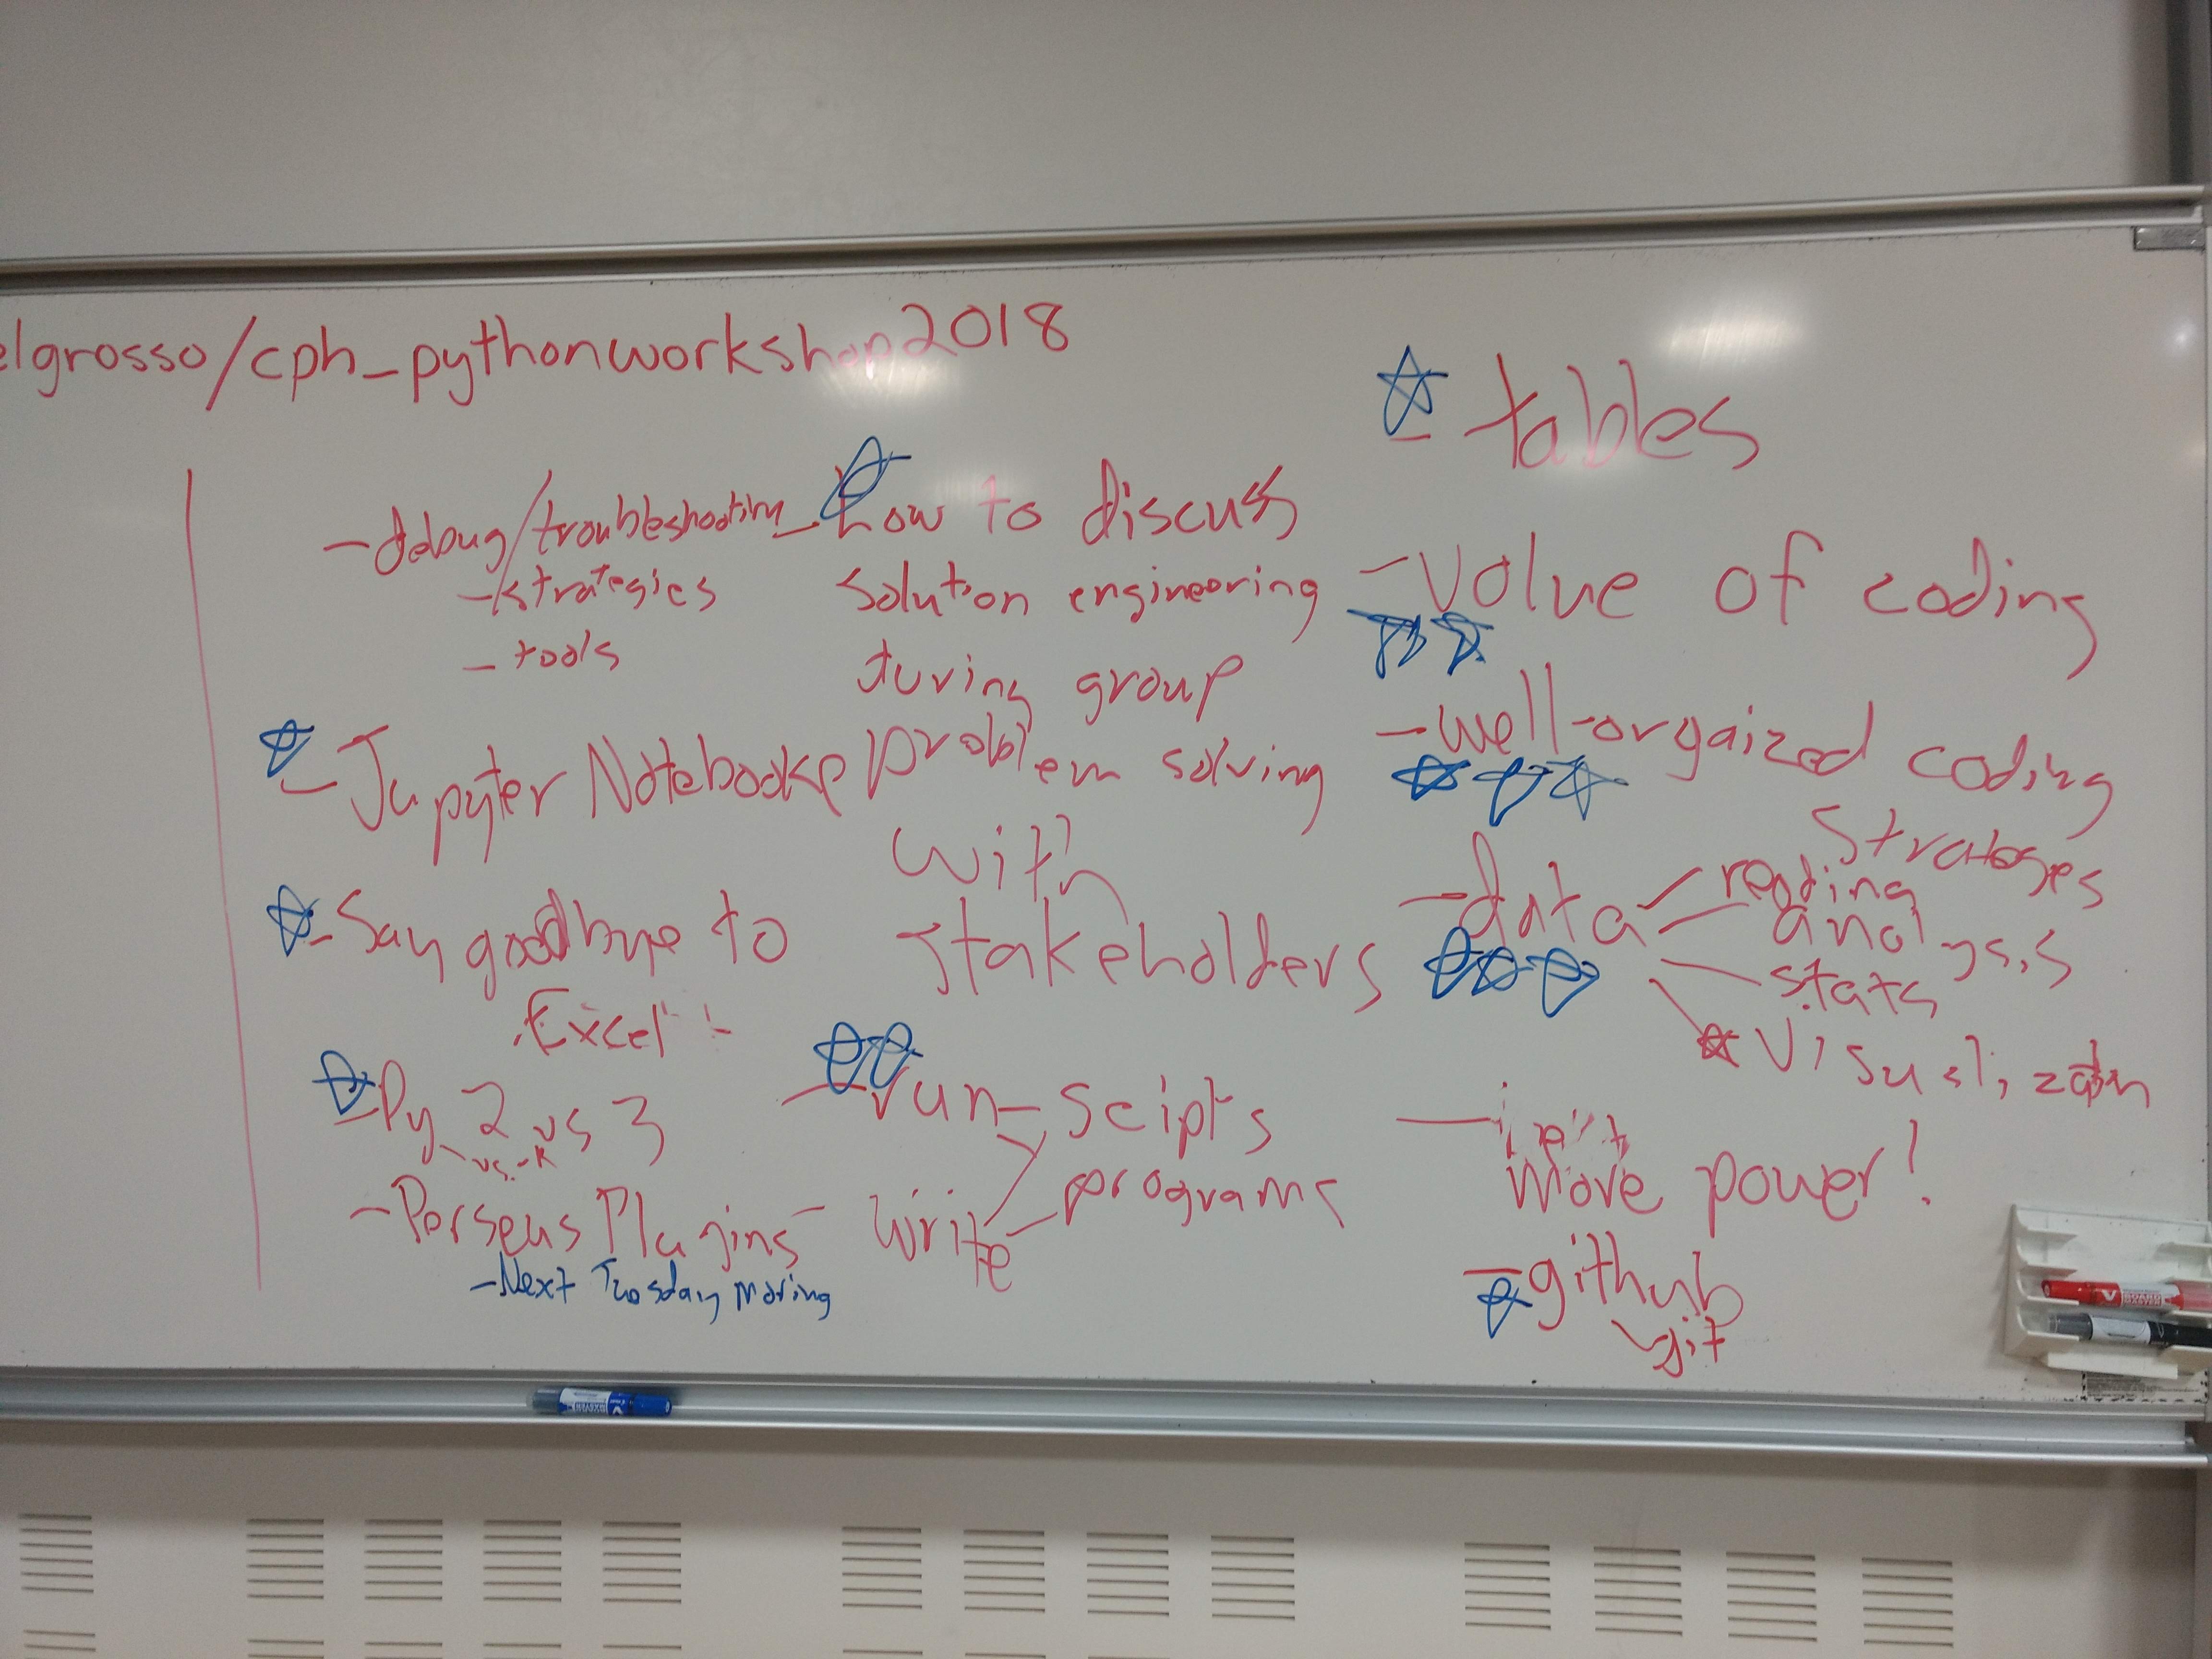 elgrosso/cph_pythonworkshop2018
- debug/troubleshooting
- strategies
- tools
- Jupyter Notebooks
- Say goodbye to
Excel
- Py 2 vs 3
vs. R
- Perseus Plugins
- Next Tuesday Morning
- how to discuss
solution engineering
during group
problem solving
with
stakeholders
- run - scipts
- write programs
- tables
- value of coding
- well-orgaized coding
strategies
- data
reading
analysis
stats
visualization
more power!
- github
git